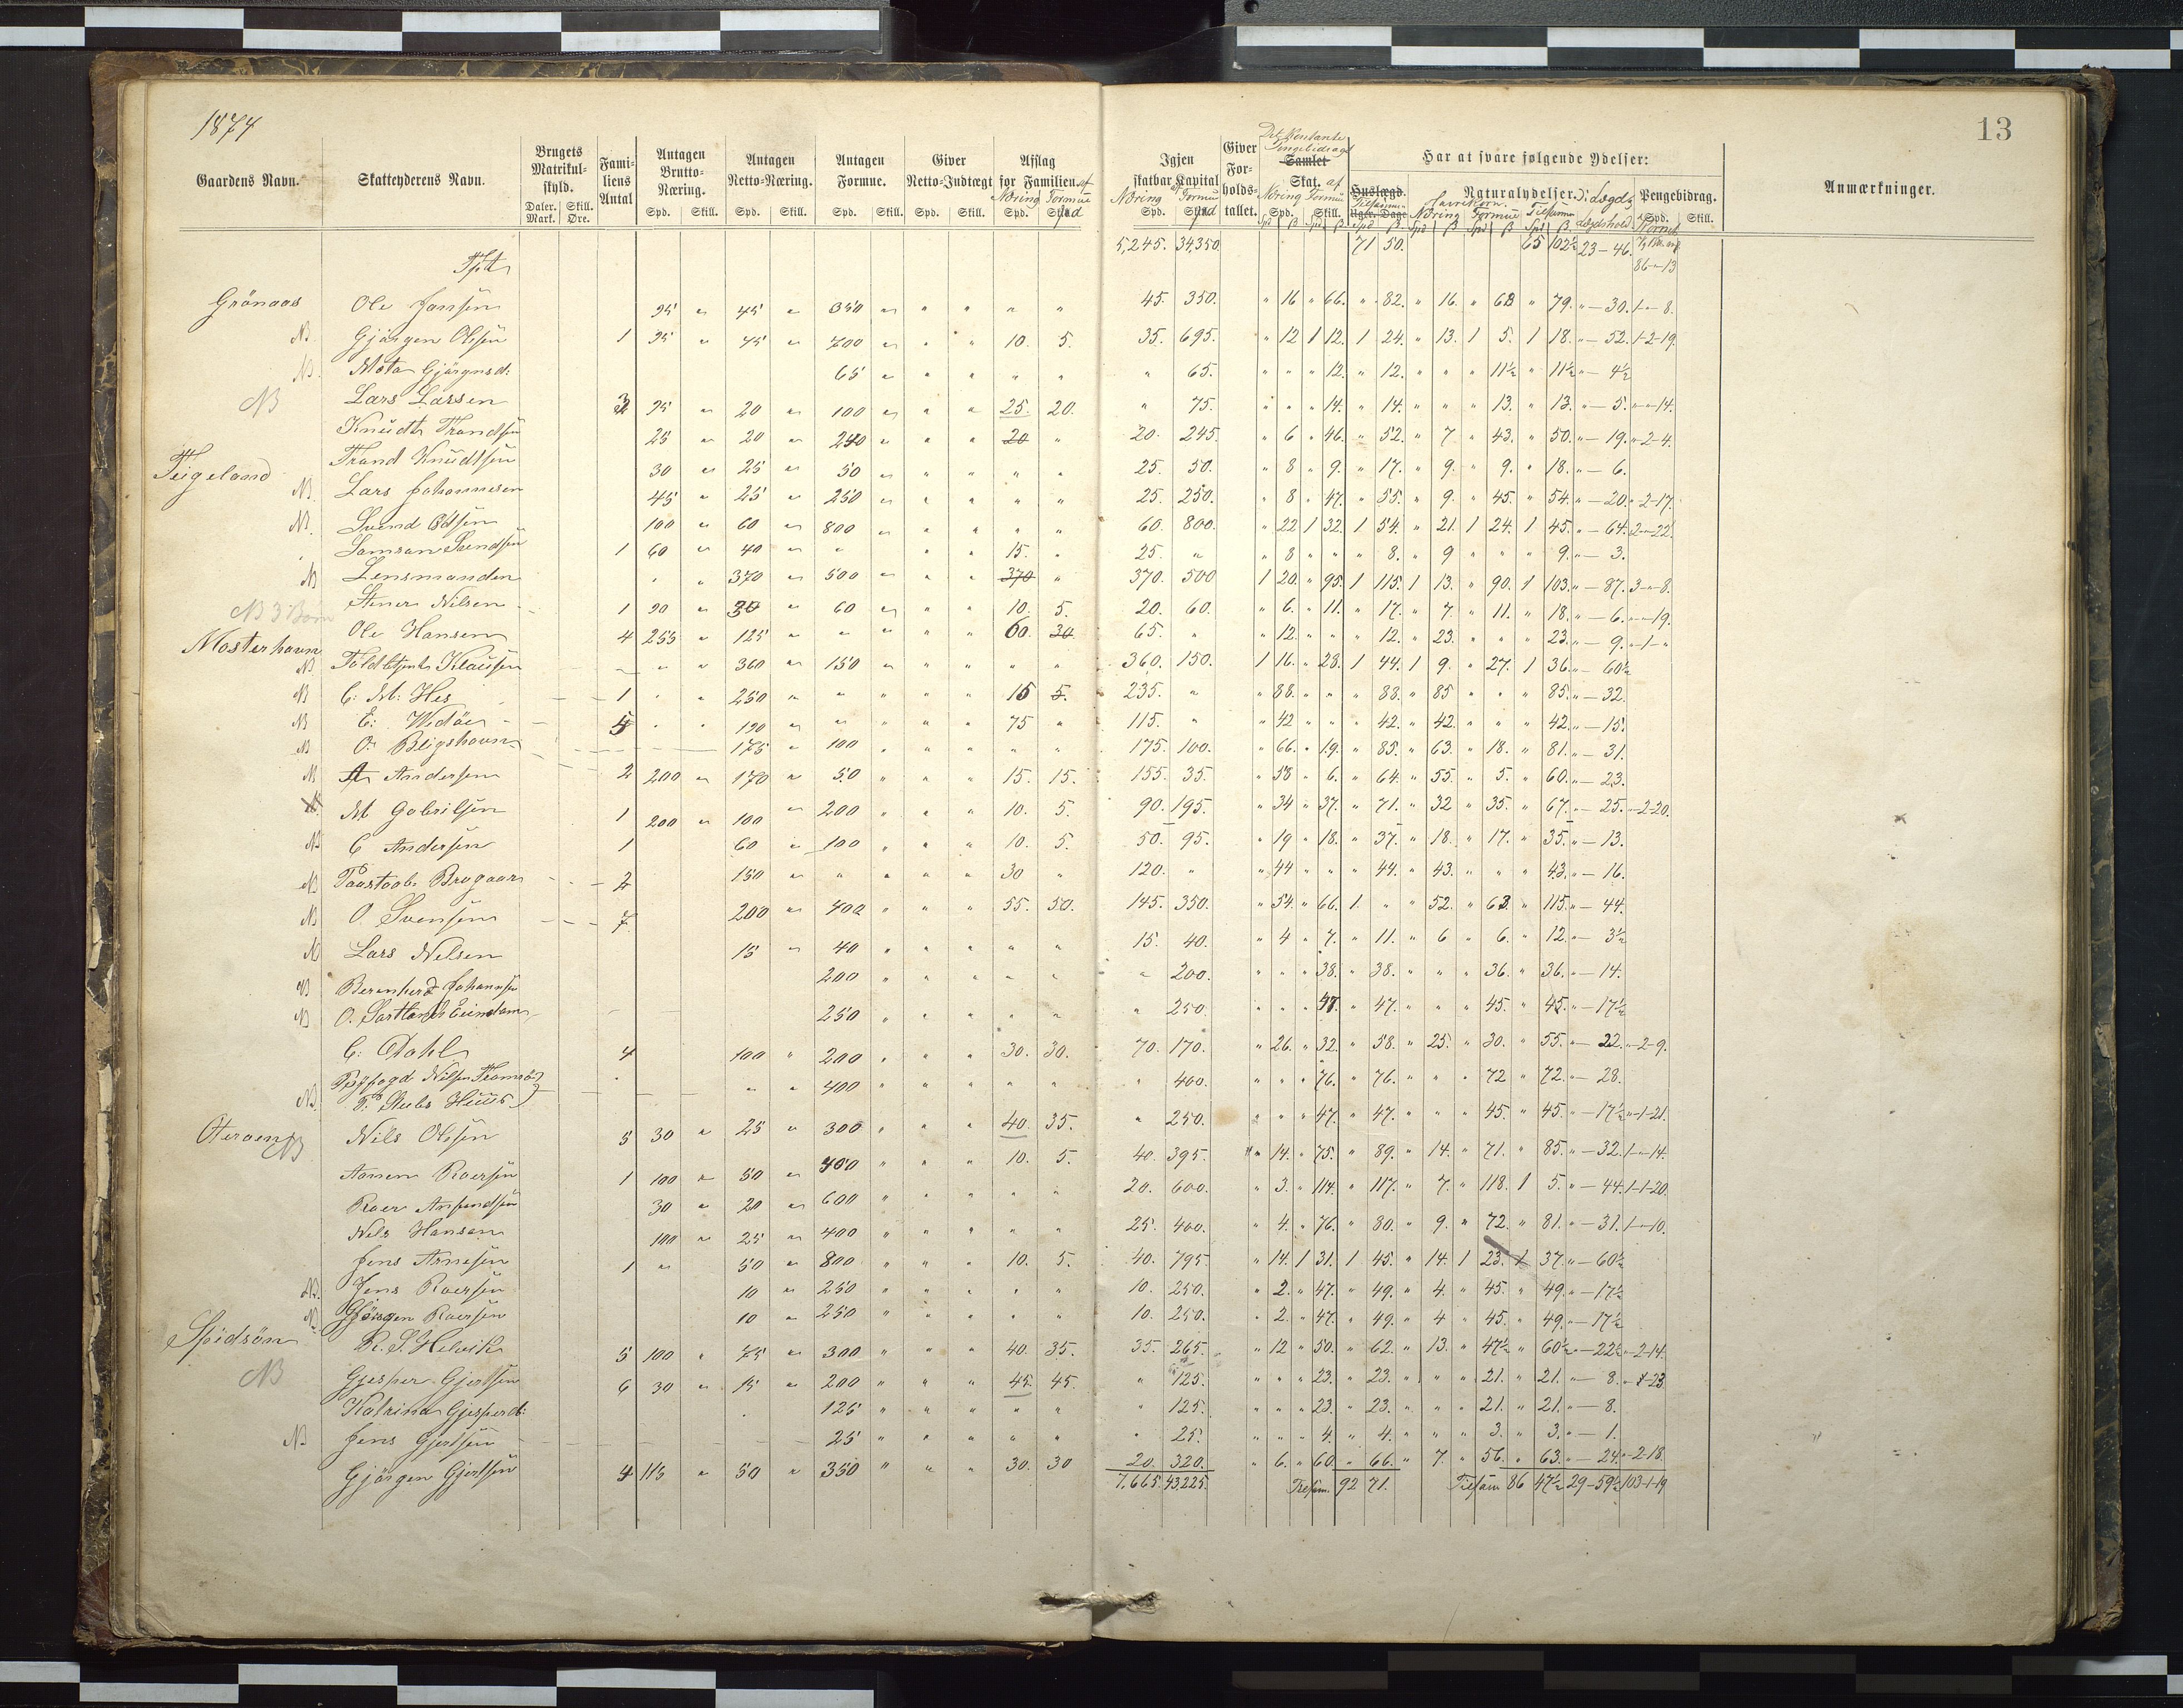 1874
13
Gaardens Navn. Skatteyderens Navn. Brugets Matrikul-skyld. Daler. Mark. Skill. Øre. Fami-liens Antal Antagen Brutto-Næring. Spd. Skill. Antagen Netto-Næring. Spd. Skill. Antagen Formue. Spd. Skill. Giver Netto-Indtægt Spd. Skill. Afslag for Familien. af Næring Formue Spd. Spd
Igjen skatbar Kapital af Næring Formue Spd. Spd Giver For-holds-tallet. Det Kontante Pengebidrag Samlet Skat. af Næring Formue Spd. Skill. Har at svare følgende Ydelser: Huslægd. Tilsammen Ugle. Dage Naturalydelser. Havrekorn. Næring Formue Tilsamm Lægds Pengebidrag. Spd. Skill. Anmærkninger.
Tpt 5,245. 34,350 71 50. 65 102½ 23-46. 86-"-13
Grönaas Ole Jansen 95 " 45 " 350 " " " " " 45. 350. " 16 " 66. " 82. " 16. " 63 " 79. "-30. 1-"-8.
NB. Gjörgen Olsen 1 95 " 45 " 700 " " " 10. 5. 35. 695. " 12 1 12. 1 24. " 13. 1 5. 1 18. "-52. 1-2-19.
NB. Mota Gjörgnsd: 65 " " " " " " 65. " " " 12. " 12. " " " 11½ " 11½ "-4½
NB Lars Larsen 3 95 " 20 " 100 " " " 25. 20. " 75. " " " 14. " 14. " " " 13. " 13. "-5. "-"-14.
Knudt Trondsen 25 " 20 " 240 " " " 20 " 20. 245. " 6 " 46. " 52. " 7 " 43. " 50. "-19. "-2-4.
Teigeland Trond Knudtsen 30 " 25 " 50 " " " " " 25. 50. " 8 " 9. " 17. " 9. " 9. " 18. "-6.
NB. Lars Johannesen 45 " 25 " 250 " " " " " 25. 250. " 8 " 47. " 55. " 9. " 45. " 54. "-20. "-2-17.
NB. Svend Odsen 100 " 60 " 800 " " " " " 60. 800. " 22 1 32. 1 54. " 21. 1 24. 1 45. "-64. 2-"-22.
Samson Svendsen 1 60 " 40 " " " " 15. " 25. " " 8 " " " 8. " 9 " " " 9. "-3.
NB Lensmanden " " 370 " 500 " " " 370 " 370. 500 1 20. " 95. 1 115. 1 13. " 90. 1 103. "-87. 3-"-8.
NB 3 Börn Stener Nilsen 1 90 " 30 " 60 " " " 10. 5. 20. 60. " 6. " 11. " 17. " 7. " 11. " 18. "-6. "-"-19.
Mosterhavn Ole Hansen 4 255 " 125 " " " " " 60. 30 65. " " 12. " " " 12. " 23. " " " 23. "-9. "-1-"
NB Toldbtjent Klausen " " 360 " 150 " " " " " 360. 150. 1 16. " 28. 1 44. 1 9. " 27. 1 36. "-60½
NB C. M. Hes 1 " " 250 " " " " " 15 5. 235. " " 88. " " " 88. " 85 " " " 85. "-32.
NB E. Wedöe 5 " " 190 " " " " " 75 " 115. " " 42 " " " 42. " 42. " " " 42. "-15.
NB O. Bligshavn 175 " 100 " " " " " 175. 100. " 66. " 19. " 85. " 63. " 18. " 81. "-31.
NB A Andersen 2 200 " 170 " 50 " " " 15. 15. 155. 35. " 58 " 6. " 64. " 55. " 5. " 60. "-23.
M Gabrilsen 1 200 " 100 " 200 " " " 10. 5. 90. 195. " 34 " 37. " 71. " 32 " 35. " 67. "-25. "-2-20.
NB C Andersen 1 60 " 100 " " " 10. 5. 50. 95. " 19 " 18. " 37. " 18. " 17. " 35. "-13.
NB Postaab. Brogaar 2 150 " " " " " 30 " 120. " " 44 " " " 44. " 43. " " " 43. "-16.
NB O. Svensen 7 200 " 400 " " " 55. 50. 145. 350. " 54. " 66. 1. " " 52. " 63. " 115. "-44.
NB Lars Nelsen 15 " 40 " " " " " 15. 40. " 4 " 7. " 11. " 6 " 6. " 12. "-3½
NB Berenherd Johannsen 200 " " " " " " 200. " " " 38. " 38. " " " 36. " 36. "-14.
NB O. Sartlands Eiendam 250 " " " " " " 250. " " " 47. " 47. " " " 45. " 45. "-17½
C. Dahl 4 100 " 200 " " " 30. 30. 70. 170. " 26. " 32. " 58. " 25. " 30. " 55. "-22. "-2-9.
Byfogd Nilsen Tromsö " " 400 " " " " " " 400. " " " 76. " 76. " " " 72 " 72. "-28.
NB. T. Stubs Huus
Oteroen NB Nils Olsen 5 30 " 25 " 300 " " " 40. 35. " 250. " " " 47. " 47. " " " 45. " 45. "-17½ "-1-21.
Aamen Roersen 1 100 " 50 " 400 " " " 10. 5. 40. 395. " 14. " 75. " 89. " 14. " 71. " 85. "-32. 1-"-14.
Roer Anfindsen 30 " 20 " 600 " " " " " 20. 600. " 3. " 114. " 117. " 7. " 118. 1 5. "-44. 1-1-20.
Nels Hansen 100 " 25 " 400 " " " " " 25. 400. " 4. " 76. " 80. " 9. " 72. " 81. "-31. 1-"-10.
Jens Arnesen 1 " 50 " 800 " " " 10. 5. 40. 795. " 14. 1 31. 1 45. " 14. 1 23. 1 37. "-60½
NB. Jens Roersen 10 " 250 " " " " " 10. 250. " 2. " 47. " 49. " 4. " 45. " 49. "-17½
NB Gjörgen Roersen 10 " 250 " " " " " 10. 250. " 2. " 47. " 49. " 4 " 45. " 49. "-17½
Spidsöen R. S. Helvik 5 100 " 75 " 300 " " " 40. 35. 35. 265. " 12 " 50. " 62. " 13. " 47½ " 60½ "-22½ "-2-14.
NB Gjesper Gjertsen 6 30 " 15 " 200 " " " 45. 45. " 125. " " " 23. " 23. " " " 21. " 21. "-8. "-1-23
Katrina Gjesperd: 125 " " " " " " 125. " " " 23. " 23. " " " 21. " 21. "-8.
NB Jens Gjertsen 25 " " " " " " 25. " " " 4. " 4. " " " 3. " 3. "-1.
Gjörgen Gjertsen 4 115 " 50 " 350 " " " 30. 30 20. 320. " 6. " 60. " 66. " 7. " 56. " 63. "-24. "-2-18.
7,665. 43,225. Tilsam. 92 71. Tilsam 86 47½ 29-59½ 103-1-19